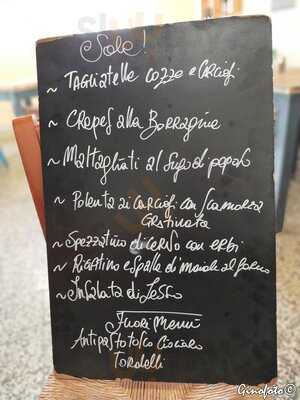 Sole!
~ TAGLIATELLE COZZE e CARCIOFI
~ CREPES alla BORRAGINE
~ MALTAGLIATI al Sugo di
~ POLENTA ai CARCIOFI con SCAMORZA
GRATINATA
~ SPEZZATINO di CERVO con ERBI
~ RIGATINO e SPALLA di MAIALE al forno
~ INSALATA di LESSO
Fuori Menù
ANTIPASTO TOSCO
TORDELLI
Ginofoto ©